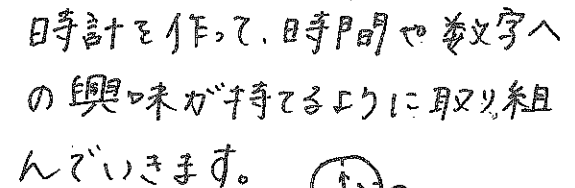 時計を作って、時間や数字へ
の興味が持てるように取り組
んでいきます。